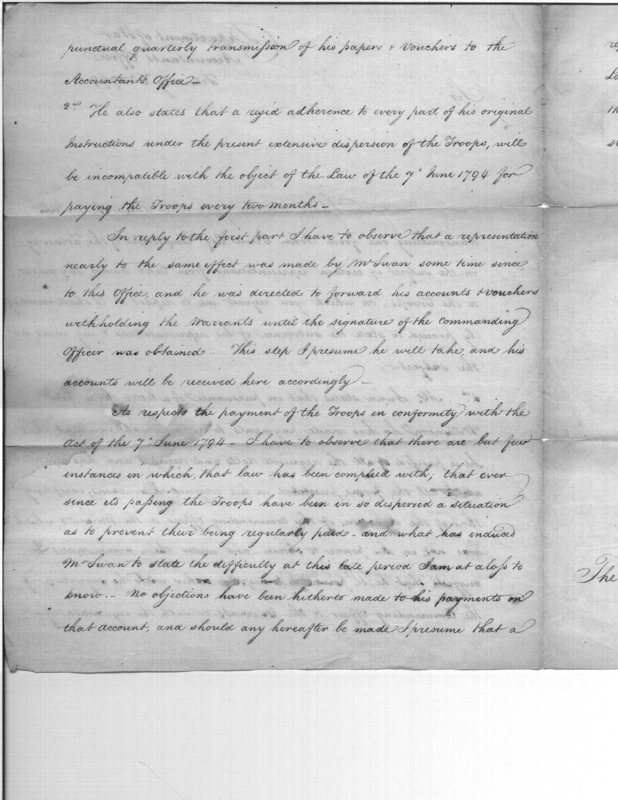 punctual quarterly transmission of his papers & vouchers to the
Accountants Office —
2nd He also states that a rigid adherence to every part of his original
Instructions under the present extensive dispersion of the Troops, will
be incompatible with the object of the Law of the 7th June 1794 for
paying the Troops every two months —
In reply to the first part I have to observe that a representation
nearly to the same effect was made by Mr Swan some time since
to this Office, and he was directed to forward his accounts & vouchers
withholding the Warrants until the signature of the Commanding
Officer was obtained — This step I presume he will take and his
accounts will be received here accordingly —
As respects the payment of the Troops in conformity with the
Act of the 7th June 1794 — I have to observe that there are but few
instances in which, that law has been complied with, that ever
since its passing the Troops have been in so dispersed a situation
as to prevent their being regularly paid — and what has induced
Mr Swan to state the difficulty at this late period I am at a loss to
know. — No objections have been hitherto made to his payments on
that account, and should any hereafter be made I presume that a
The